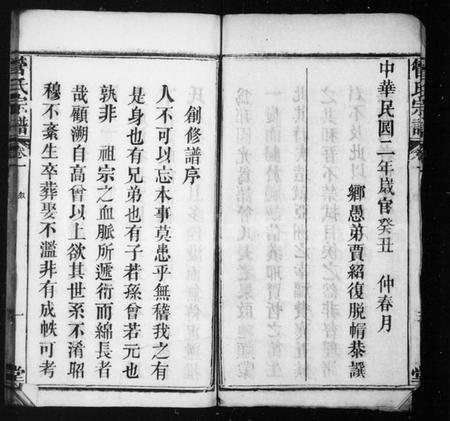 中華民國二年歲官癸丑 仲春月
鄉愚弟賈紹復脫帽恭譔
管氏宗譜 卷一
創修譜序
人不可以忘本事莫患乎無稽我之有
是身也有兄弟也有子若孫曾若元也
孰非一祖宗之血脈所遞衍而綿長者
哉顧溯自高曾以上欲其世系不淆昭
穆不紊生卒葬娶不濫非有成帙可考
管氏宗譜 卷一 敘 一 堂